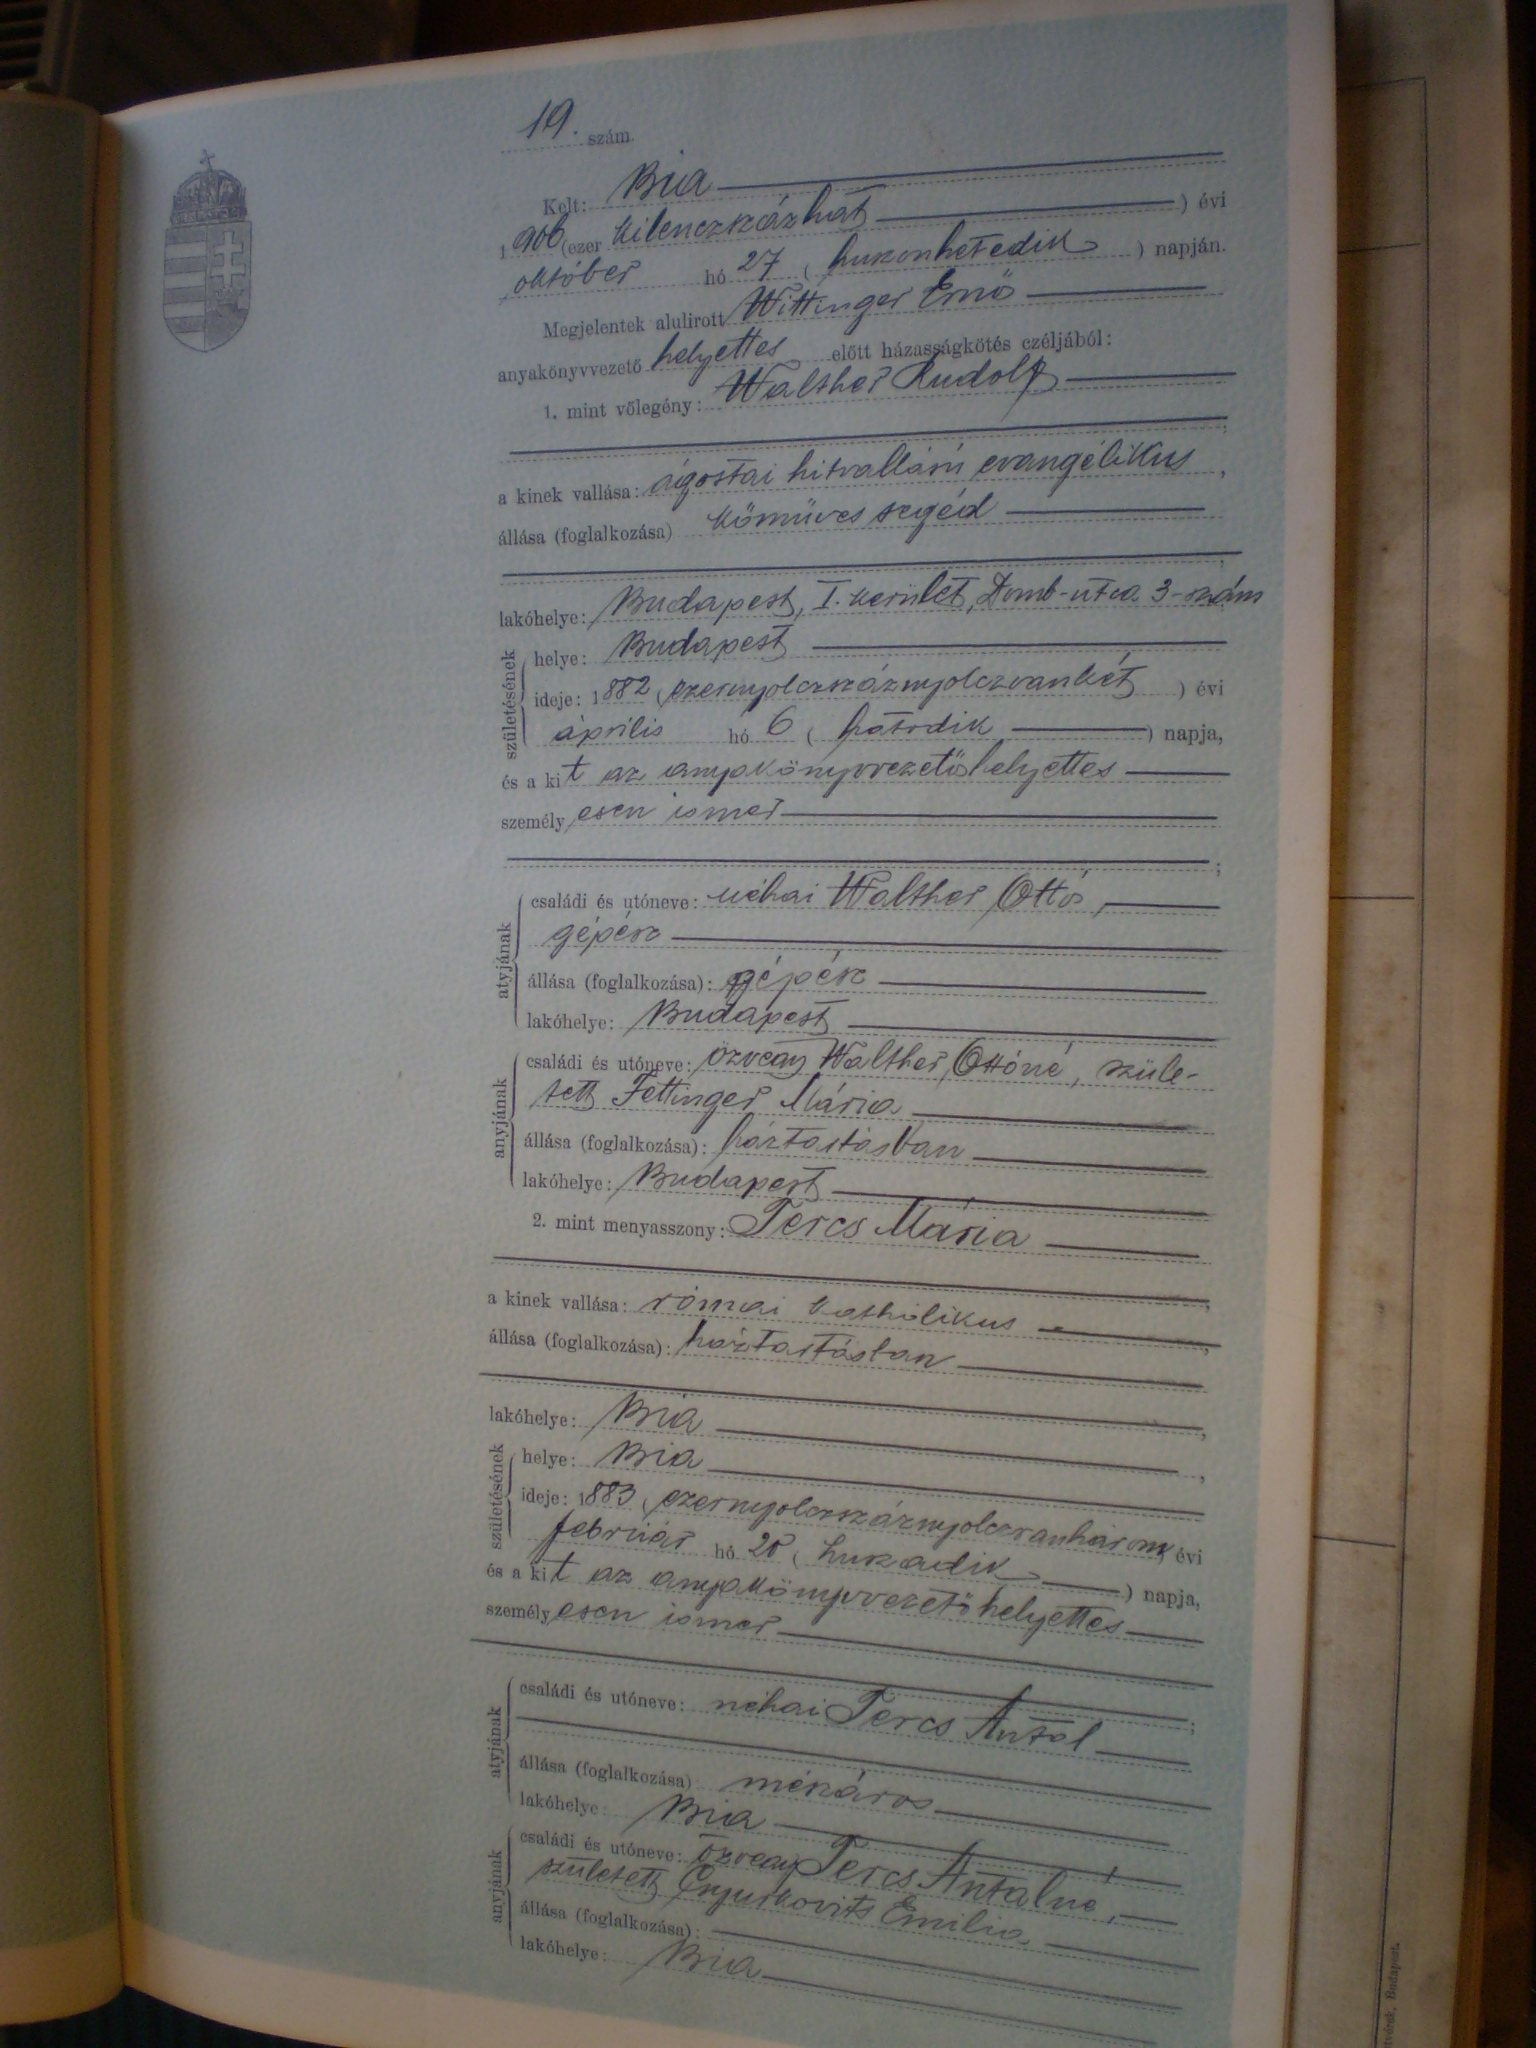 19. szám.
Kelt: Bia
1906 (ezer kilenczszázhat) évi
október hó 27 (huszonhetedik) napján.
Megjelentek alulirott Wittinger Ernő
anyakönyvvezető helyettes előtt házasságkötés czéljából:
1. mint vőlegény: Walther Rudolf
a kinek vallása: ágostai hitvallású evangélikus,
állása (foglalkozása) kőmüves segéd
lakóhelye: Budapest, I. kerület, Domb-utca 3-szám
születésének
helye: Budapest
ideje: 1882 (ezernyolczszáznyolczvankét) évi
április hó 6 (hatodik) napja,
és a kit az anyakönyvvezetőhelyettes
személyesen ismer
;
atyjának
családi és utóneve: néhai Walther Ottó,
gépész
állása (foglalkozása): gépész
lakóhelye: Budapest
anyjának
családi és utóneve: özvegy Walther Ottóné, szüle-
tett Fettinger Mária
állása (foglalkozása): háztartásban
lakóhelye: Budapest
2. mint menyasszony: Tercs Mária
a kinek vallása: római katholikus
állása (foglalkozása): háztartásban
lakóhelye: Bia
születésének
helye: Bia
ideje: 1883 (ezernyolczszáznyolczvanhárom) évi
február hó 20 (huszadik) napja,
és a kit az anyakönyvvezetőhelyettes
személyesen ismer
;
atyjának
családi és utóneve: néhai Tercs Antal
állása (foglalkozása) mészáros
lakóhelye: Bia
anyjának
családi és utóneve: özvegy Tercs Antalné,
született Emilia
állása (foglalkozása):
lakóhelye: Bia
Budapest.